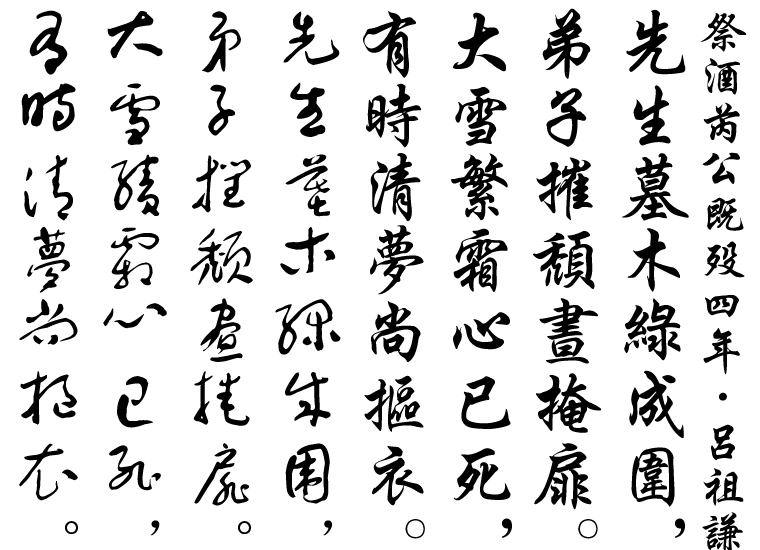 祭酒芮公既歿四年・呂祖謙
先生墓木綠成圍，
弟子摧頹晝掩扉。
大雪繁霜心已死，
有時清夢尚摳衣。
先生墓木綠成圍，
弟子摧頹晝掩扉。
大雪繁霜心已死，
有時清夢尚摳衣。